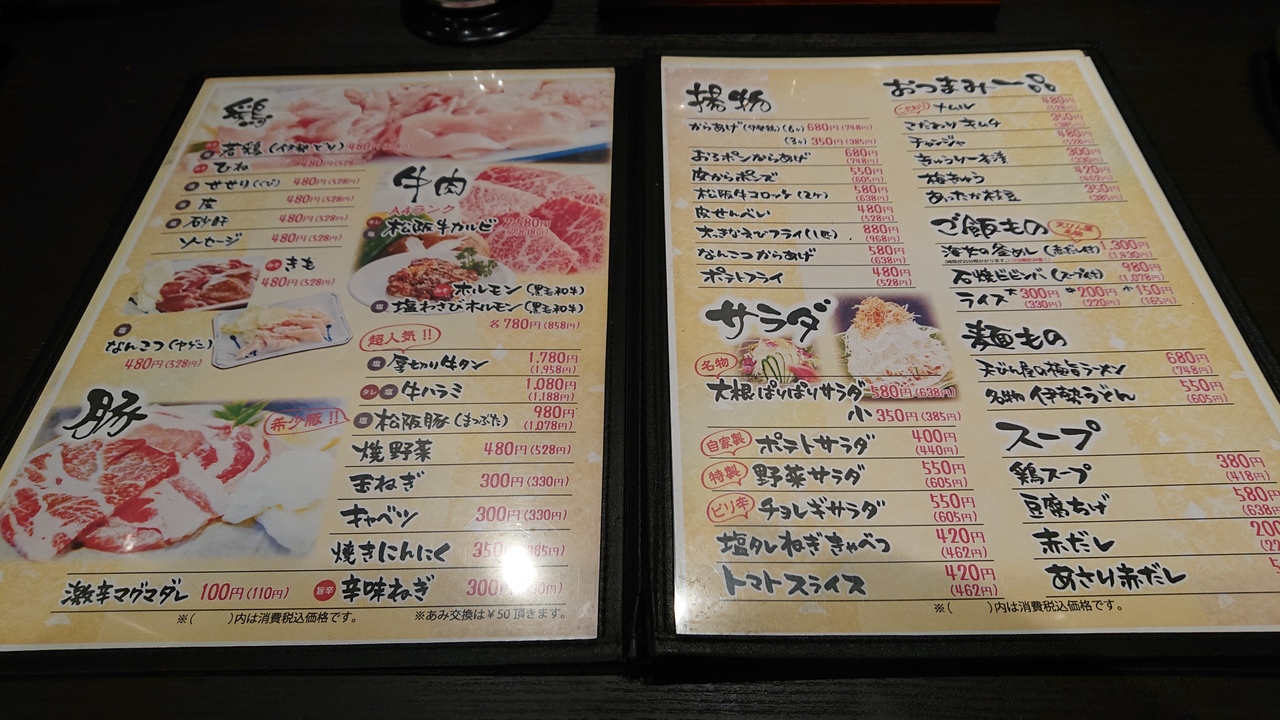 鶏
若鶏(伊勢どり) 480円(528円)
ひね 480円(528円)
せせり(くび) 480円(528円)
皮 480円(528円)
砂肝 480円(528円)
ソーセージ 480円(528円)
きも
480円(528円)
なんこつ(ヤゲン)
480円(528円)
牛肉
A4ランク
松阪牛カルビ
ホルモン(黒毛和牛)
塩 塩わさびホルモン(黒毛和牛)
各780円(858円)
超人気!!
塩 厚切り牛タン 1,780円(1,958円)
タレ 塩 牛ハラミ 1,080円(1,188円)
塩 松阪豚(まつぶた) 980円(1,078円)
豚
希少豚!!
焼野菜 480円(528円)
玉ねぎ 300円(330円)
キャベツ 300円(330円)
焼きにんにく 350円(385円)
激辛マグマダレ 100円(110円)
旨辛 辛味ねぎ 300円(330円)
※( )内は消費税込価格です。 ※あみ交換は¥50頂きます。
揚物
からあげ(伊勢鶏)(6ヶ) 680円(748円)
(3ヶ) 350円(385円)
おろポンからあげ 680円(748円)
皮からポンズ 550円(605円)
松阪牛コロッケ(2ヶ) 580円(638円)
皮せんべい 480円(528円)
大きなえびフライ(1匹) 880円(968円)
なんこつからあげ 580円(638円)
ポテトフライ 480円(528円)
サラダ
名物
大根ぱりぱりサラダ 580円(638円)
小 350円(385円)
自家製 ポテトサラダ 400円(440円)
特製 野菜サラダ 550円(605円)
ピリ辛 チョレギサラダ 550円(605円)
塩タレねぎきゃべつ 420円(462円)
トマトスライス 420円(462円)
おつまみ一品
ナムル 480円(528円)
こだわりキムチ 350円(385円)
チャンジャ 480円(528円)
きゅうり一本漬 300円(330円)
梅きゅう 420円(462円)
あったか枝豆 350円(385円)
ご飯もの
海老の釜めし(赤だし付) 1,300円(1,430円)
石焼ビビンバ(スープ付) 980円(1,078円)
ライス 大300円(330円) 中200円(220円) 小150円(165円)
麺もの
天びん屋の極旨ラーメン 680円(748円)
名物 伊勢うどん 550円(605円)
スープ
鶏スープ 380円(418円)
豆腐ちげ 580円
赤だし
あさり赤だし
※( )内は消費税込価格です。